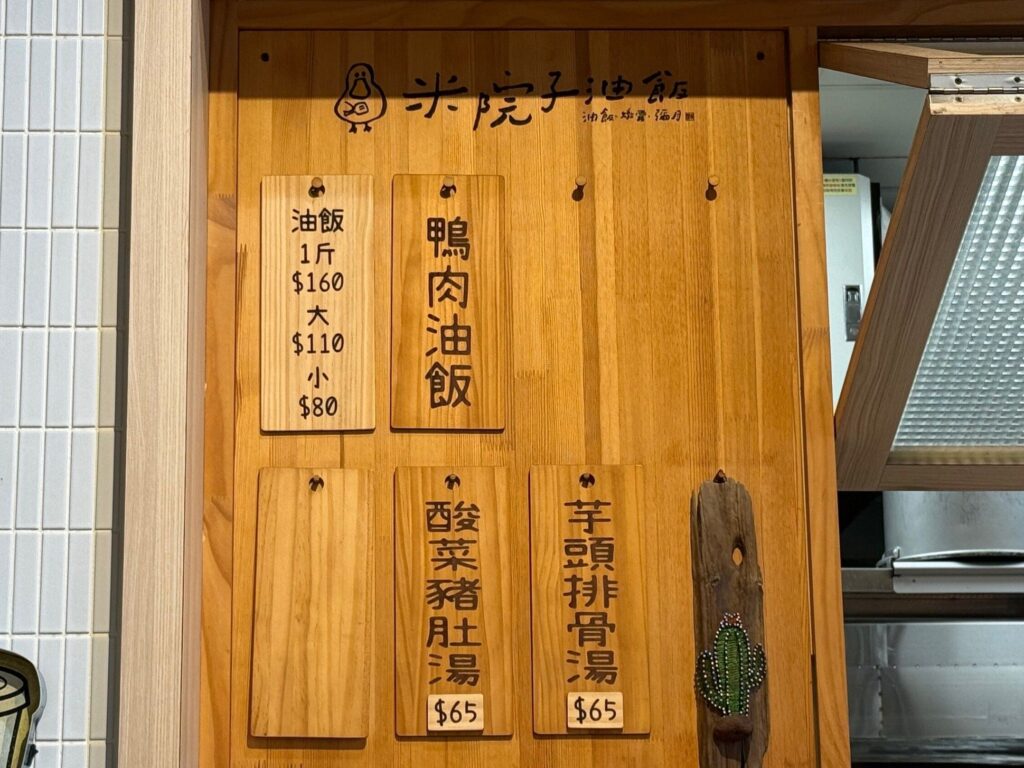 米院子油飯
油飯·嫁醬·彌月
油飯
1斤
$160
大
$110
小
$80
鴨肉油飯
酸菜豬肚湯
$65
芋頭排骨湯
$65